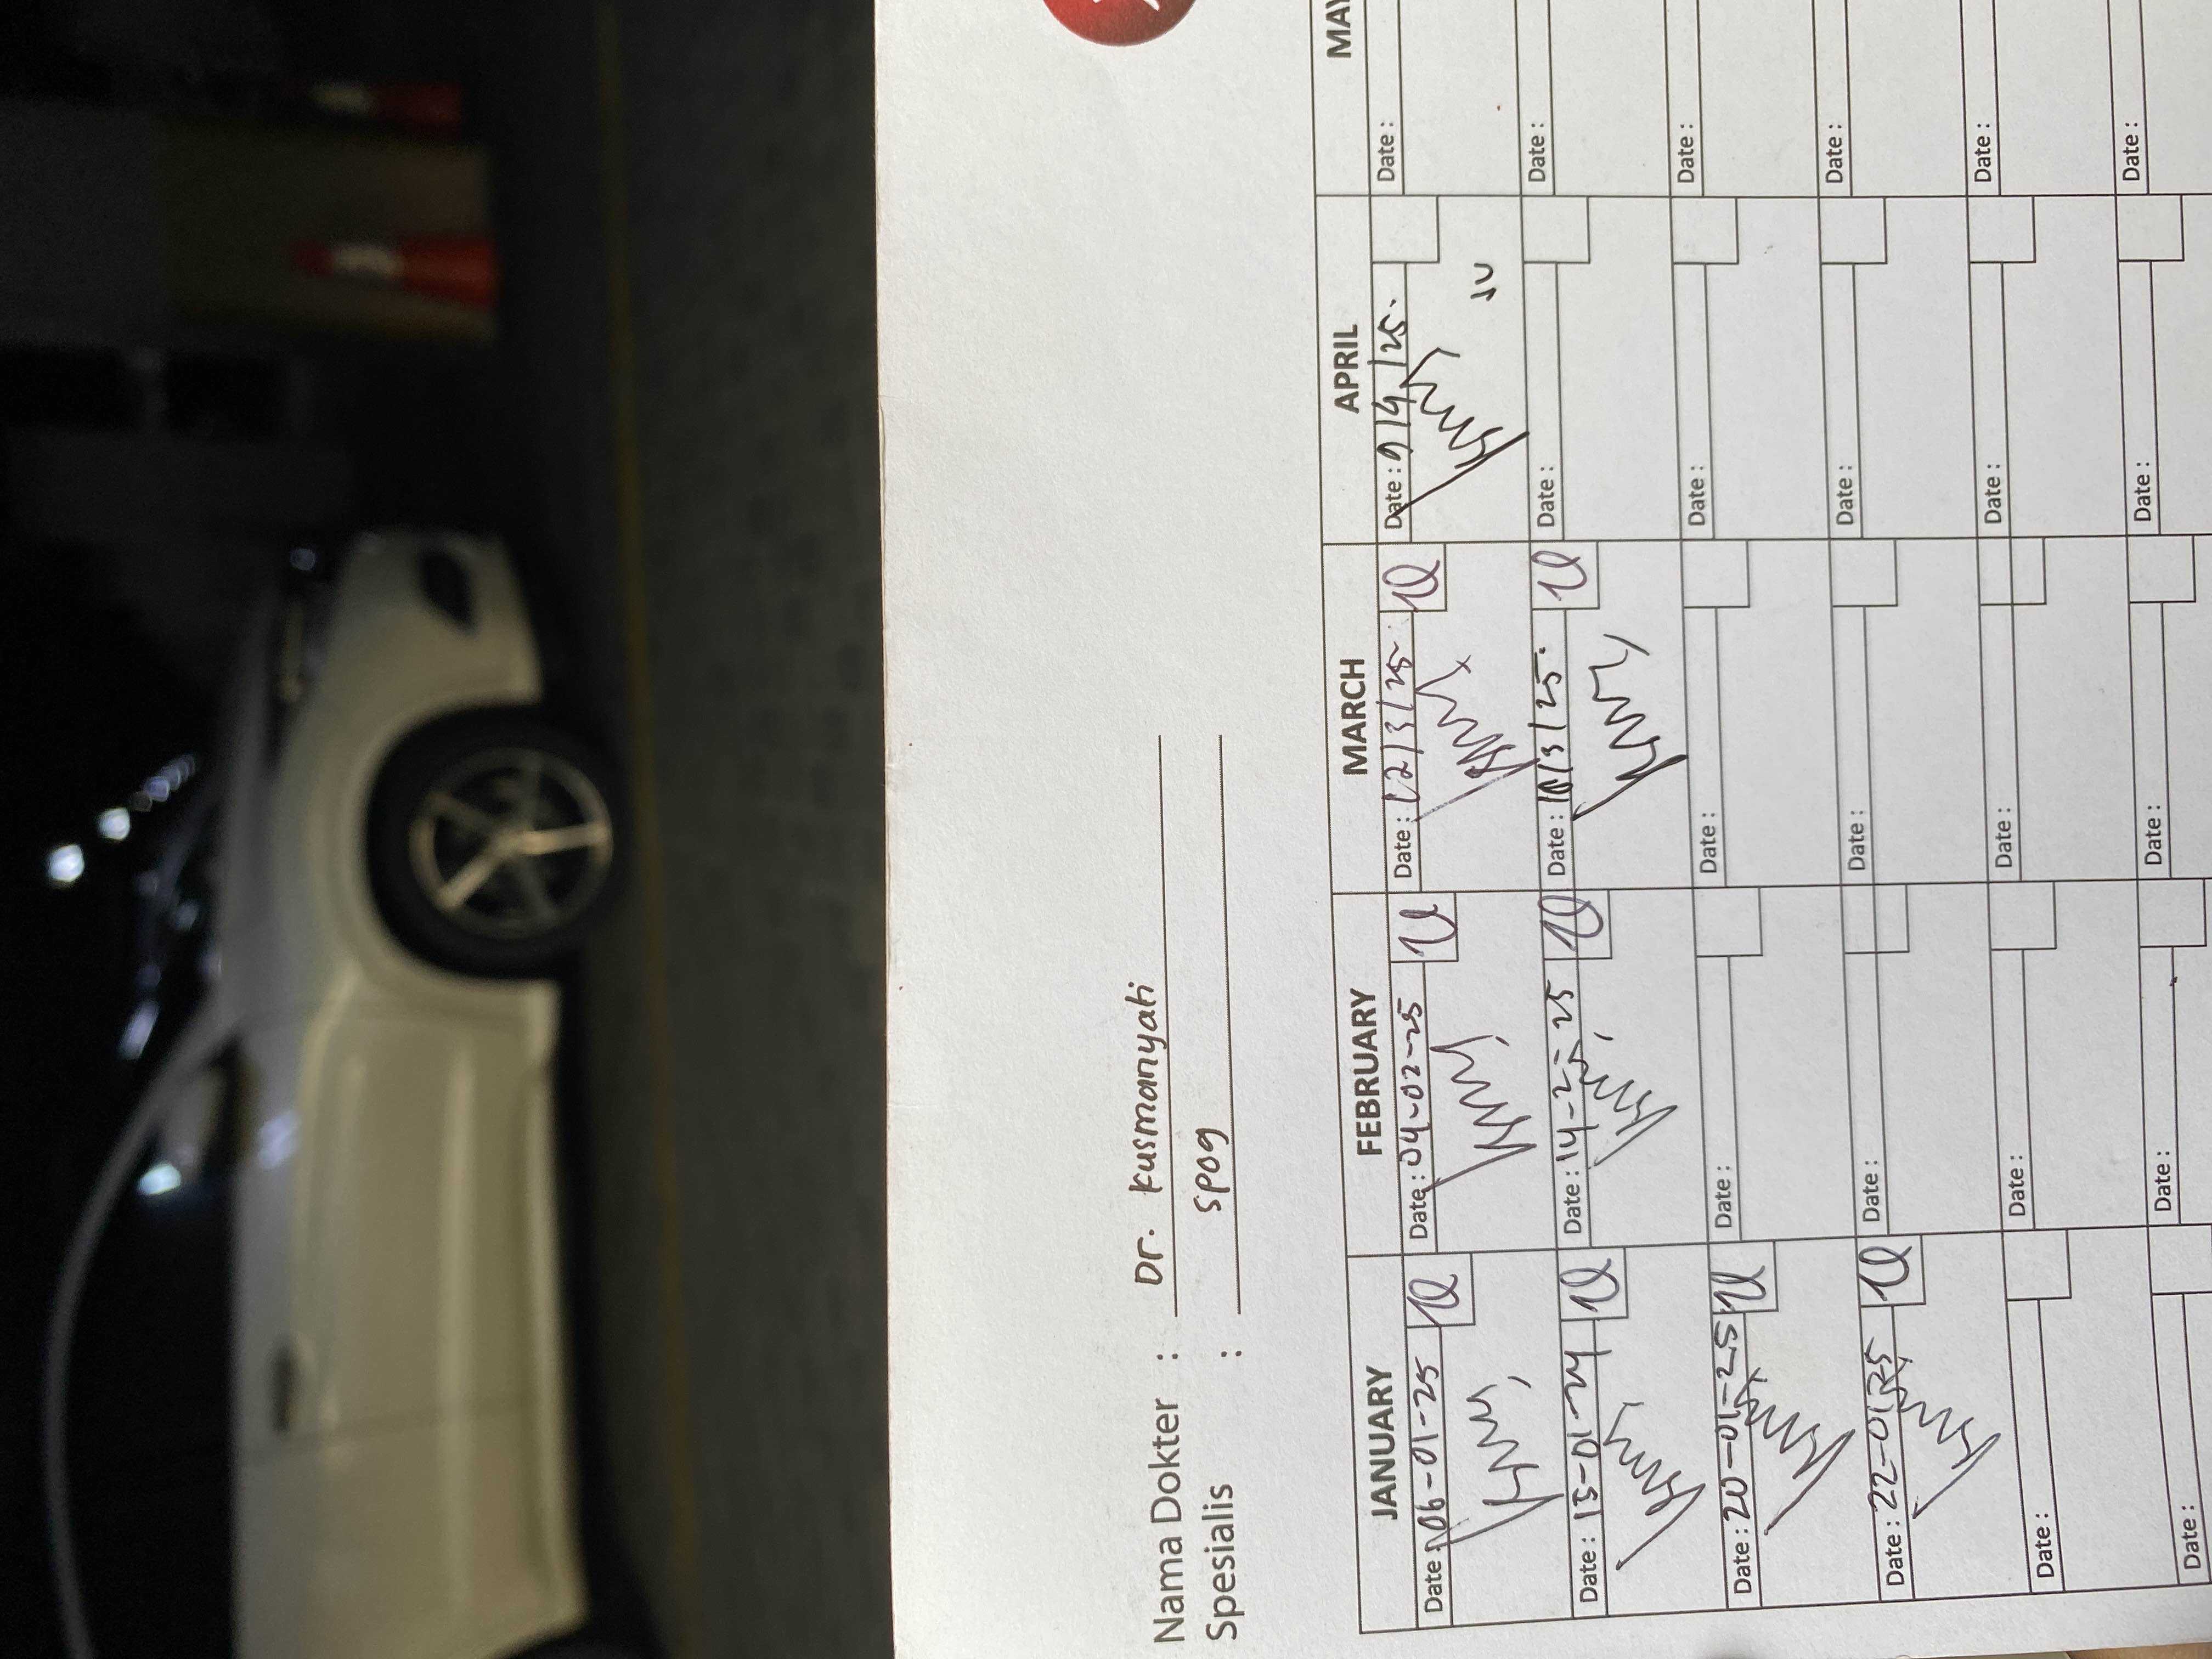 Nama Dokter : Dr. Kusmanyati
Spesialis : SPOG
JANUARY FEBRUARY MARCH APRIL
Date : 06-01-25 Date : 04-02-25 Date : 12/3/25 Date : 9/4/25. Date :
Date : 15-01-24 Date : 14-2-25 Date : 18/3/25. Date : Date :
Date : 20-01-25 Date : Date : Date : Date :
Date : 22-01-25 Date : Date : Date : Date :
Date : Date : Date : Date : Date :
Date : Date : Date : Date : Date :